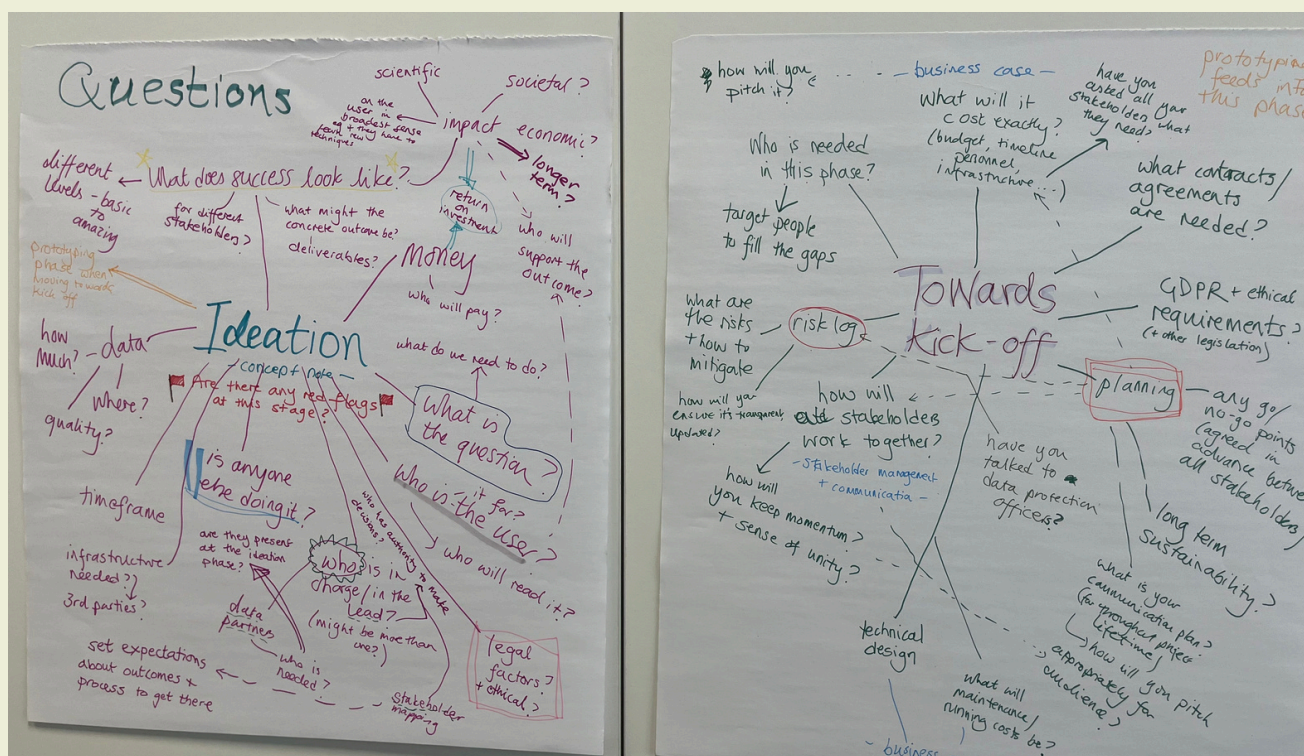 Questions
scientific
societal?
on the
user in
broadest sense
eg + they have to
learn new
techniques
impact
economic?
longer
term?
What does success look like?
different
levels - basic
to
amazing
for different
stakeholders?
what might the
concrete outcome be?
deliverables?
return
on
investment
who will
support the
outcome?
Money
who will pay?
prototyping
phase when
moving towards
kick off
Ideation
- concept note -
Are there any red flags
at this stage?
how
much?
data
where?
quality?
what do we need to do?
What is
the question?
it for?
who is the user?
who will read it?
is anyone
else doing it?
timeframe
infrastructure
needed?
3rd parties?
are they present
at the ideation
phase?
who has authority to make
decisions?
who is in
charge/in the
lead?
(might be more than
one?)
data
partners
who is
needed?
set expectations
about outcomes +
process to get there
stakeholder
mapping
legal
factors?
+ ethical?
how will you
pitch it?
- business case -
What will it
cost exactly?
(budget, timeline
personnel,
infrastructure...)
have you
asked all your
stakeholders what
they need?
prototyping
feeds into
this phase
Who is needed
in this phase?
target people
to fill the gaps
what contracts/
agreements
are needed?
Towards
Kick-off
GDPR + ethical
requirements?
(+ other legislation)
risk log
what are
the risks
+ how to
mitigate
how will you
ensure it's transparent,
updated?
how will
stakeholders
work together?
- stakeholder management
+ communication -
how will
you keep momentum?
+ sense of unity?
planning
any go/
no-go points
(agreed in
advance between
all stakeholders)
have you
talked to
data protection
officers?
long term
sustainability?
what is your
communication plan?
(for throughout project
lifetime)
how will you pitch
appropriately for
audience?
technical
design
what will
maintenance/
running costs be?
- business